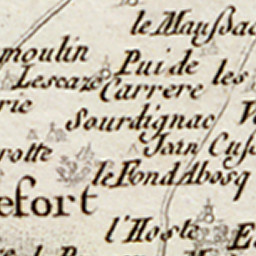 le Maußac
moulin
Pui de
les
Lescaze
Carrere
rie
Sourdignac
rotte
Jain Cuso
le Fond Abosq
efort
l'Hoste